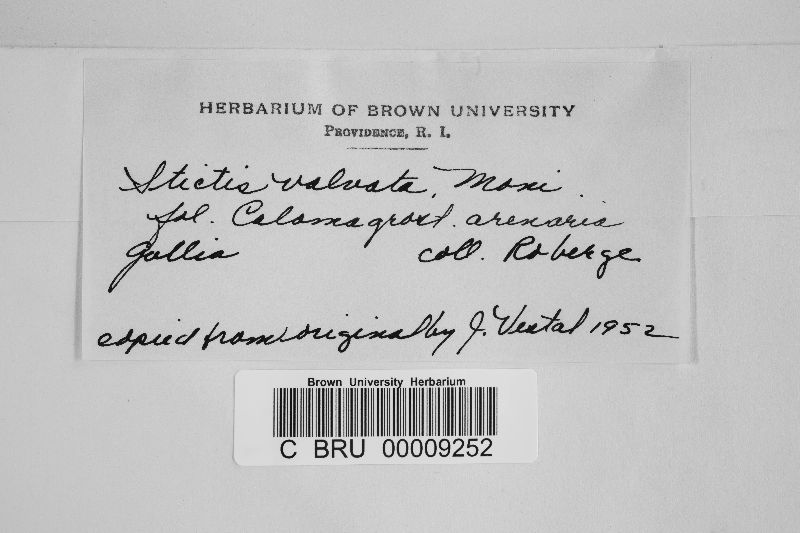 HERBARIUM OF BROWN UNIVERSITY
PROVIDENCE, R. I.
Stictis valvata, Moni.
fol. Calamagrost. arenaria
Gallia coll. Roberge
copied from original by J. Vestal 1952
Brown University Herbarium
C BRU 00009252